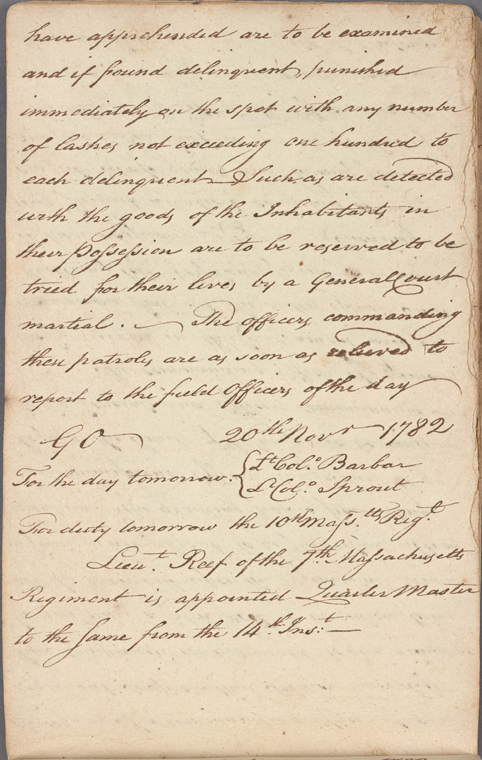 have apprehended are to be examined
and if found delinquent, punished
immediately on the spot with any number
of lashes not exceeding one hundred to
each delinquent — Such as are detected
with the goods of the Inhabitants in
their Possession are to be reserved to be
tried for their lives by a General Court
martial. — The officers commanding
these patroles are as soon as relieved to
report to the field Officers of the day
GO 20th Novr 1782
For the day tomorrow. { Lt Colo Barbar
Lt Colo Sprout
For duty tomorrow the 10th Massts Regt
Lieut Reef of the 7th Massachusetts
Regiment is appointed Quarter Master
to the same from the 14th Inst —